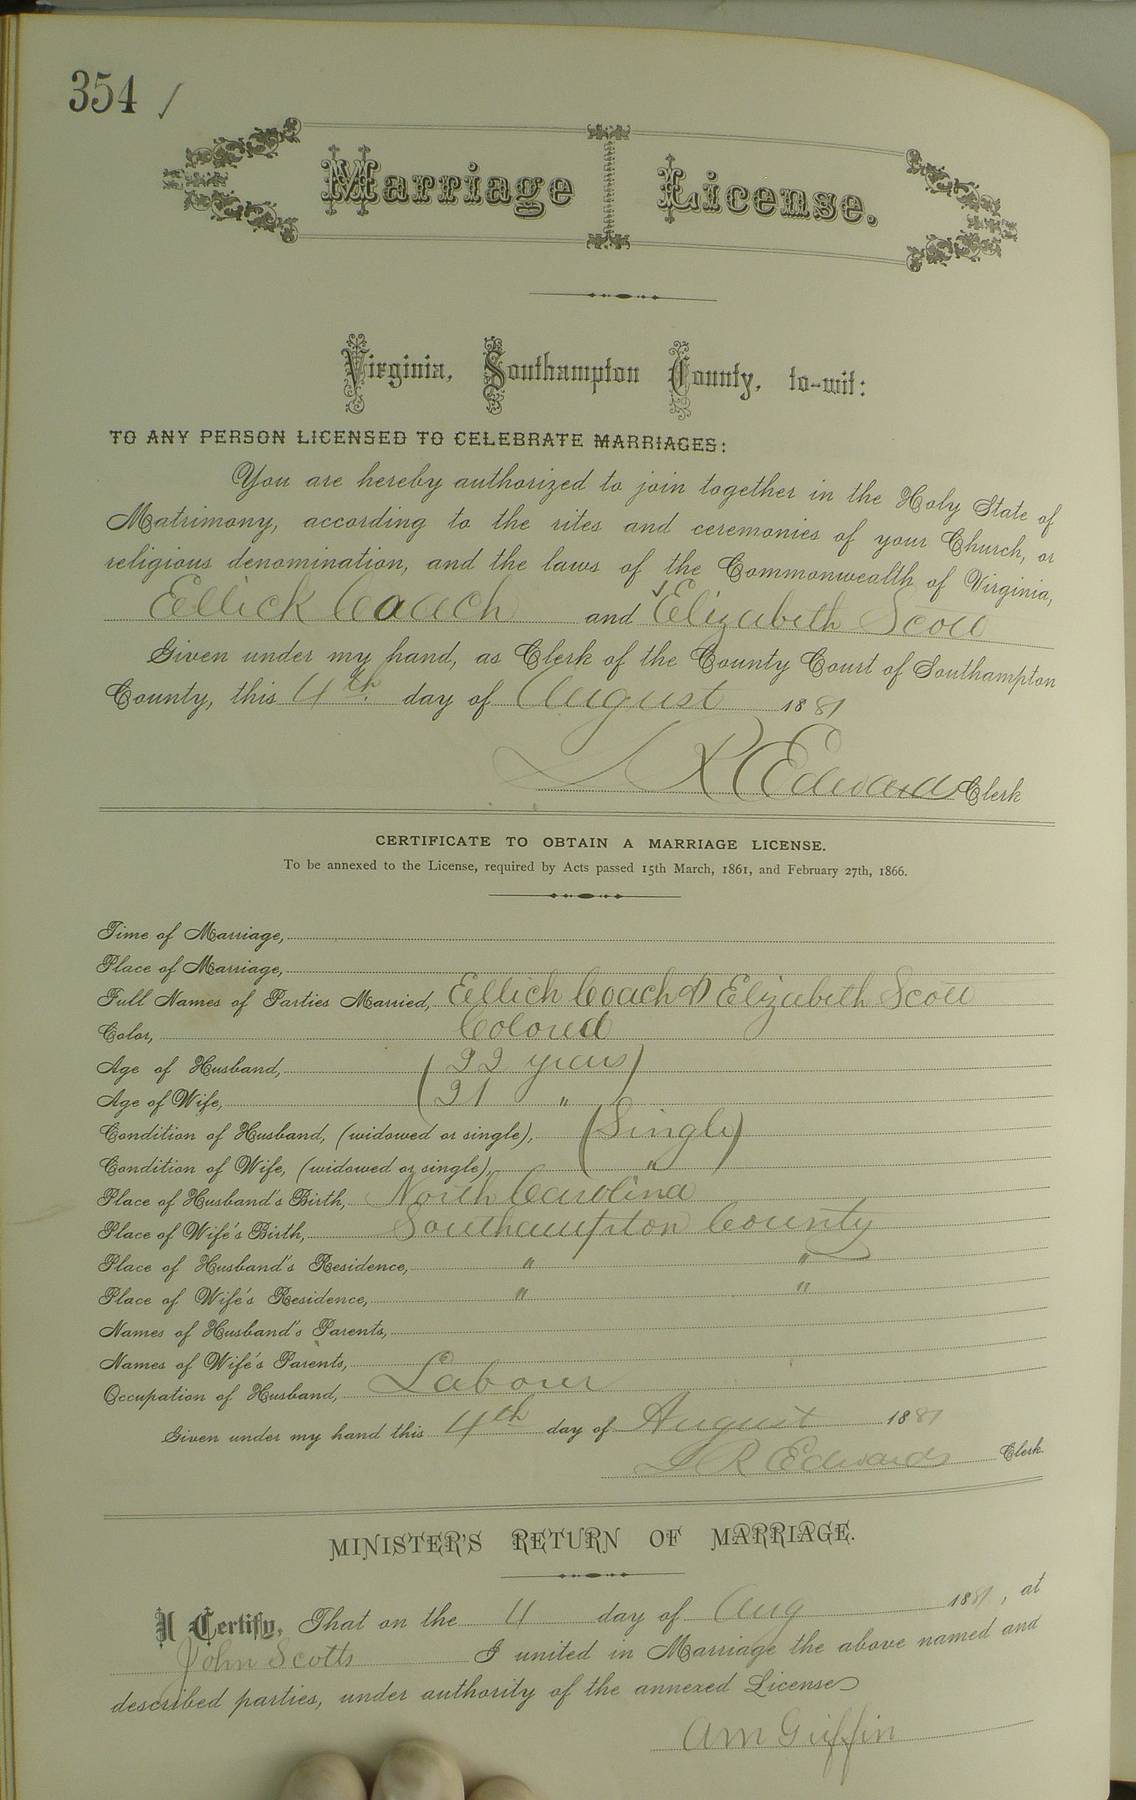 354 /
Marriage License.
Virginia, Southampton County, to-wit:
TO ANY PERSON LICENSED TO CELEBRATE MARRIAGES:
You are hereby authorized to join together in the Holy State of
Matrimony, according to the rites and ceremonies of your Church, or
religious denomination, and the laws of the Commonwealth of Virginia,
Ellick Coach and Elizabeth Scott
Given under my hand, as Clerk of the County Court of Southampton
County, this 4th day of August 1881
L R Edwards Clerk
CERTIFICATE TO OBTAIN A MARRIAGE LICENSE.
To be annexed to the License, required by Acts passed 15th March, 1861, and February 27th, 1866.
Time of Marriage,
Place of Marriage,
Full Names of Parties Married, Ellich Coach & Elizabeth Scott
Color, Colored
Age of Husband, (22 years)
Age of Wife, (21 "
Condition of Husband, (widowed or single), (Single)
Condition of Wife, (widowed or single), "
Place of Husband's Birth, North Carolina
Place of Wife's Birth, Southampton County
Place of Husband's Residence, " "
Place of Wife's Residence, " "
Names of Husband's Parents,
Names of Wife's Parents,
Occupation of Husband, Labour
Given under my hand this 4th day of August 1881
L R Edwards Clerk.
MINISTER'S RETURN OF MARRIAGE.
I Certify, That on the 4 day of Aug 1881, at
John Scotts I united in Marriage the above named and
described parties, under authority of the annexed License
AM Griffin